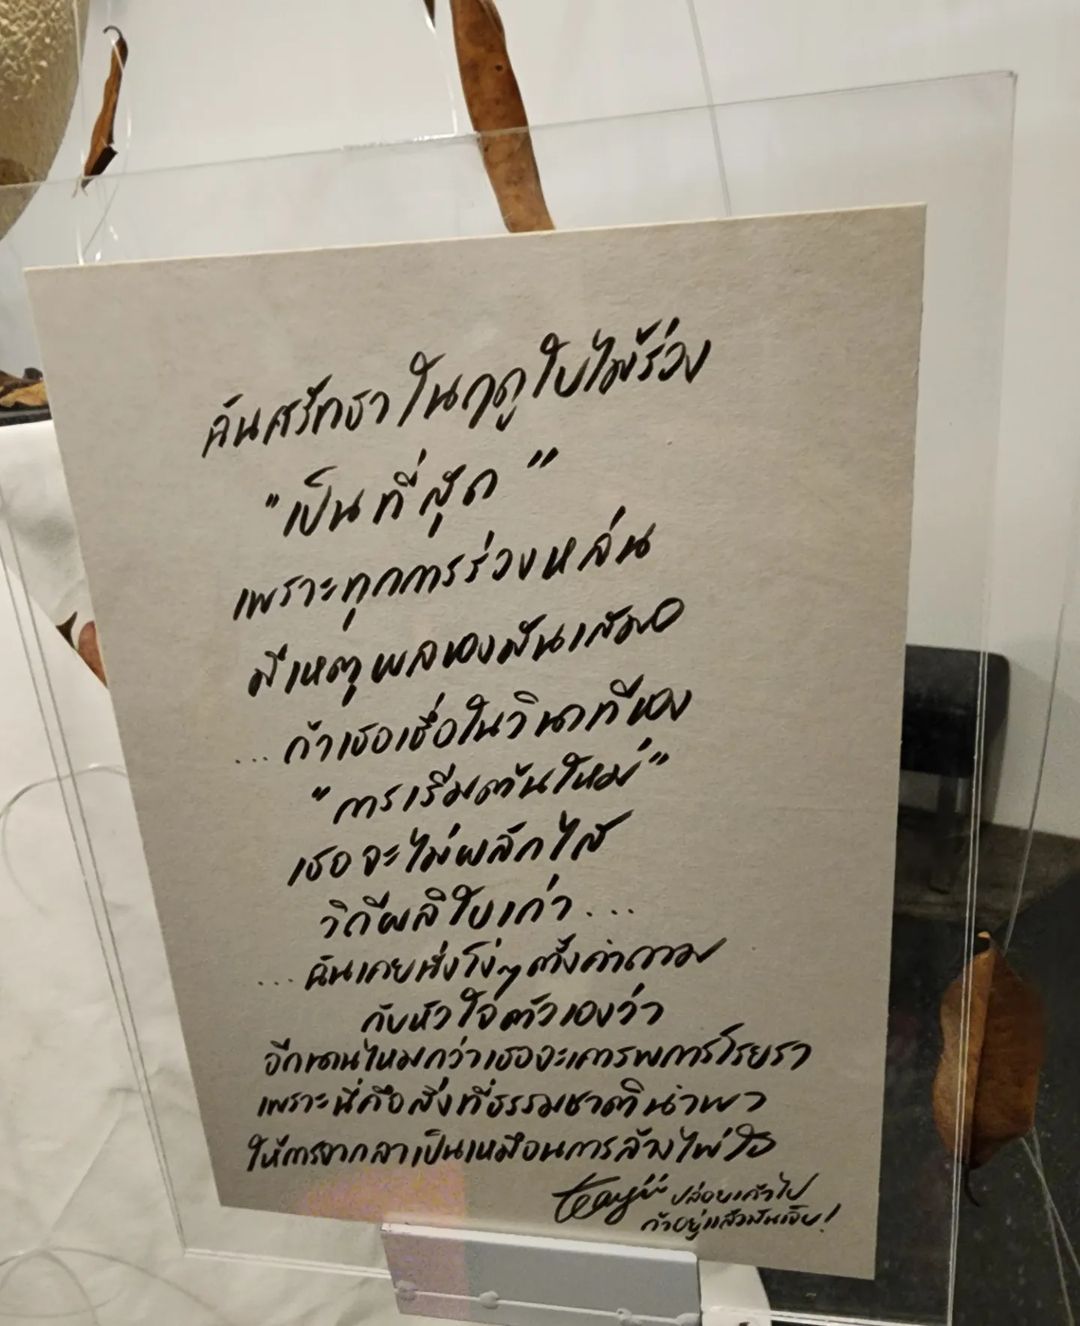 ฉันศรัทธาในฤดูใบไม้ร่วง
"เป็นที่สุด"
เพราะทุกการร่วงหล่น
มีเหตุผลของมันเสมอ
...ถ้าเธอเชื่อในวินาทีของ
"การเริ่มต้นใหม่"
เธอจะไม่ผลักไส
วิถีผลิใบเก่า...
...ฉันเคยนั่งโง่ๆตั้งคำถาม
กับหัวใจตัวเองว่า
อีกนานไหมกว่าเธอจะเคารพการโรยรา
เพราะนี่คือสิ่งที่ธรรมชาตินำพา
ให้การจากลาเป็นเหมือนการล้างไพ่ใจ
ปล่อยเก้าไป
ถ้าอยู่แล้วมันเจ็บ!